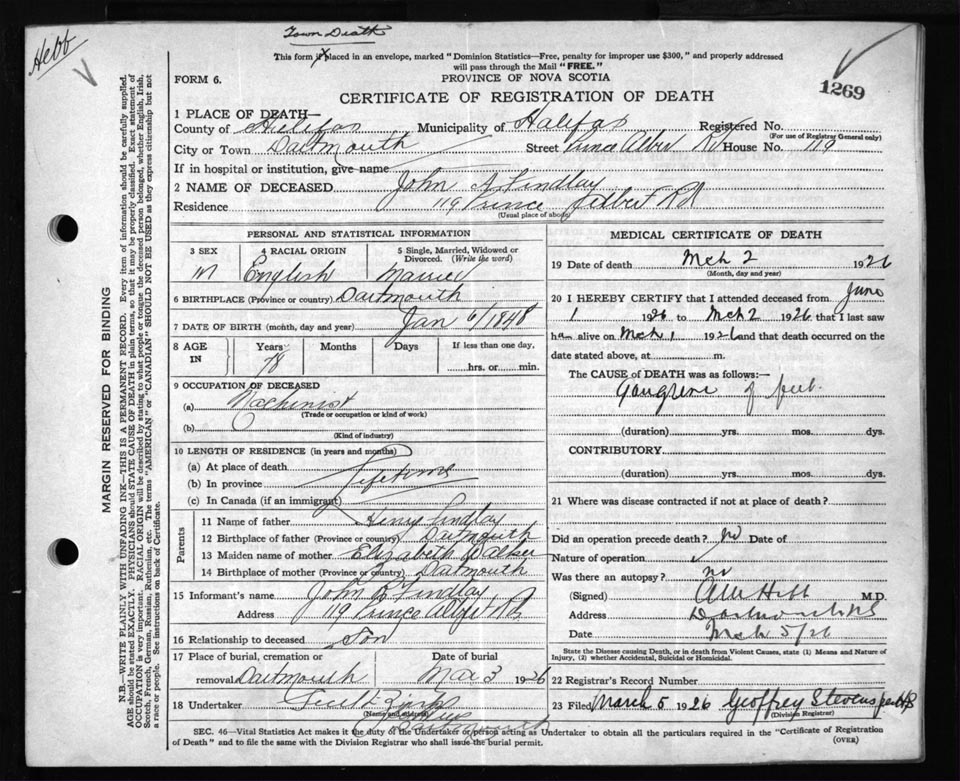 Hebb
Town Death
This form if placed in an envelope, marked "Dominion Statistics—Free, penalty for improper use $300," and properly addressed
will pass through the Mail "FREE."
FORM 6.
PROVINCE OF NOVA SCOTIA
CERTIFICATE OF REGISTRATION OF DEATH
1269
1 PLACE OF DEATH—
County of Halifax Municipality of Halifax Registered No.
(For use of Registrar General only)
City or Town Dartmouth Street Prince Albert Rd House No. 119
If in hospital or institution, give name
2 NAME OF DECEASED John A Findlay
Residence 119 Prince Albert Rd
(Usual place of abode)
PERSONAL AND STATISTICAL INFORMATION
3 SEX 4 RACIAL ORIGIN 5 Single, Married, Widowed or
Divorced. (Write the word)
M English Married
6 BIRTHPLACE (Province or country) Dartmouth
7 DATE OF BIRTH (month, day and year) Jan 6/1848
8 AGE IN Years Months Days If less than one day,
78 hrs. or min.
9 OCCUPATION OF DECEASED
(a) Machinist
(Trade or occupation or kind of work)
(b)
(Kind of industry)
10 LENGTH OF RESIDENCE (in years and months)
(a) At place of death
(b) In province Lifetime
(c) In Canada (if an immigrant)
Parents
11 Name of father Henry Findlay
12 Birthplace of father (Province or country) Dartmouth
13 Maiden name of mother Elizabeth Walker
14 Birthplace of mother (Province or country) Dartmouth
15 Informant's name John Findlay
Address 119 Prince Albert Rd
16 Relationship to deceased Son
17 Place of burial, cremation or Date of burial
removal Dartmouth Mar 3 1926
18 Undertaker
(Name and address)
Dartmouth
MEDICAL CERTIFICATE OF DEATH
19 Date of death Mch 2 1926
(Month, day and year)
20 I HEREBY CERTIFY that I attended deceased from June
1 1926 to Mch 2 1926 that I last saw
h alive on Mch 1 1926 and that death occurred on the
date stated above, at m.
The CAUSE OF DEATH was as follows:—
Gangrene of feet
(duration) yrs. mos. dys.
CONTRIBUTORY
(duration) yrs. mos. dys.
21 Where was disease contracted if not at place of death?
Did an operation precede death? no Date of
Nature of operation
Was there an autopsy? no
(Signed) Hebb M.D.
Address Dartmouth NS
Date Mch 5/26
State the Disease causing Death, or in death from Violent Causes, state (1) Means and Nature of
Injury, (2) whether Accidental, Suicidal or Homicidal.
22 Registrar's Record Number
23 Filed March 5 1926 Geoffrey Stevens
(Division Registrar)
SEC. 46—Vital Statistics Act makes it the duty of the Undertaker or person acting as Undertaker to obtain all the particulars required in the "Certificate of Registration
of Death" and to file the same with the Division Registrar who shall issue the burial permit.
(OVER)
MARGIN RESERVED FOR BINDING
N.B.—WRITE PLAINLY WITH UNFADING INK—THIS IS A PERMANENT RECORD. Every item of information should be carefully supplied.
AGE should be stated EXACTLY. PHYSICIANS should STATE CAUSE OF DEATH in plain terms, so that it may be properly classified. Exact statement of
OCCUPATION is very important. RACIAL ORIGIN will be described by stating to what people or tongue the deceased person belonged, whether English, Irish,
Scotch, French, German, Russian, Ruthenian, etc. The terms "AMERICAN" or "CANADIAN" SHOULD NOT BE USED as they express citizenship but not
a race or people. See instructions on back of Certificate.